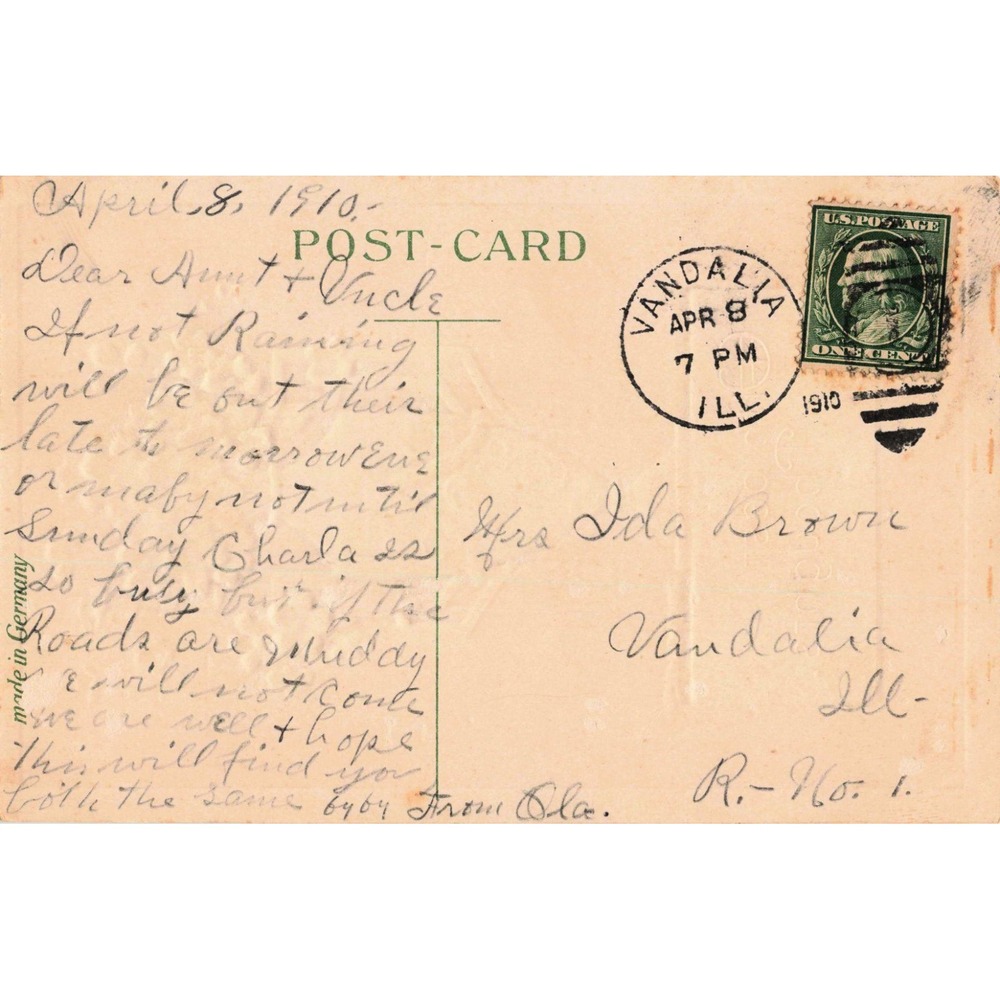 April 8, 1910.-
POST-CARD
Dear Aunt + Uncle
If not Raining
will be out their
late to morrow Eve
or maby not until
Sunday Charla is
so busy but if the
Roads are Muddy
we will not come
we are well + hope
This will find you
both the same by by From Ola.
made in Germany
VANDALIA
APR 8
7 PM
ILL.
1910
U.S. POSTAGE
ONE CENT
Mrs Ida Brown
Vandalia
Ill-
R.- No. 1.